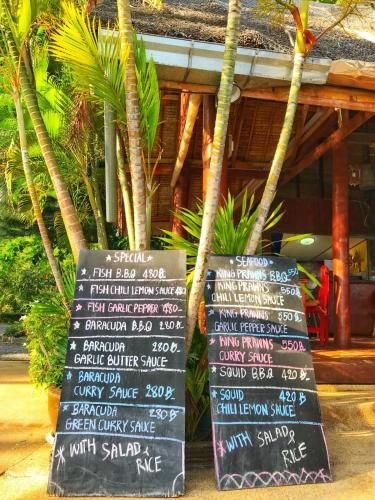 ★ SPECIAL ★
★ FISH B.B.Q 480฿
★ FISH CHILI LEMON SAUCE
★ FISH GARLIC PEPPER 480
★ BARACUDA B.B.Q 280฿
★ BARACUDA 280฿
GARLIC BUTTER SAUCE
★ BARACUDA
CURRY SAUCE 280฿
★ BARACUDA 280฿
GREEN CURRY SAUCE
★ WITH SALAD &
RICE
★ SEAFOOD ★
★ KING PRAWNS B.B.Q 550
★ KING PRAWNS 550฿
CHILI LEMON SAUCE
★ KING PRAWNS 550฿
GARLIC PEPPER SAUCE
★ KING PRAWNS 550฿
CURRY SAUCE
★ SQUID B.B.Q 420฿
★ SQUID 420฿
CHILI LEMON SAUCE
★ WITH SALAD &
RICE